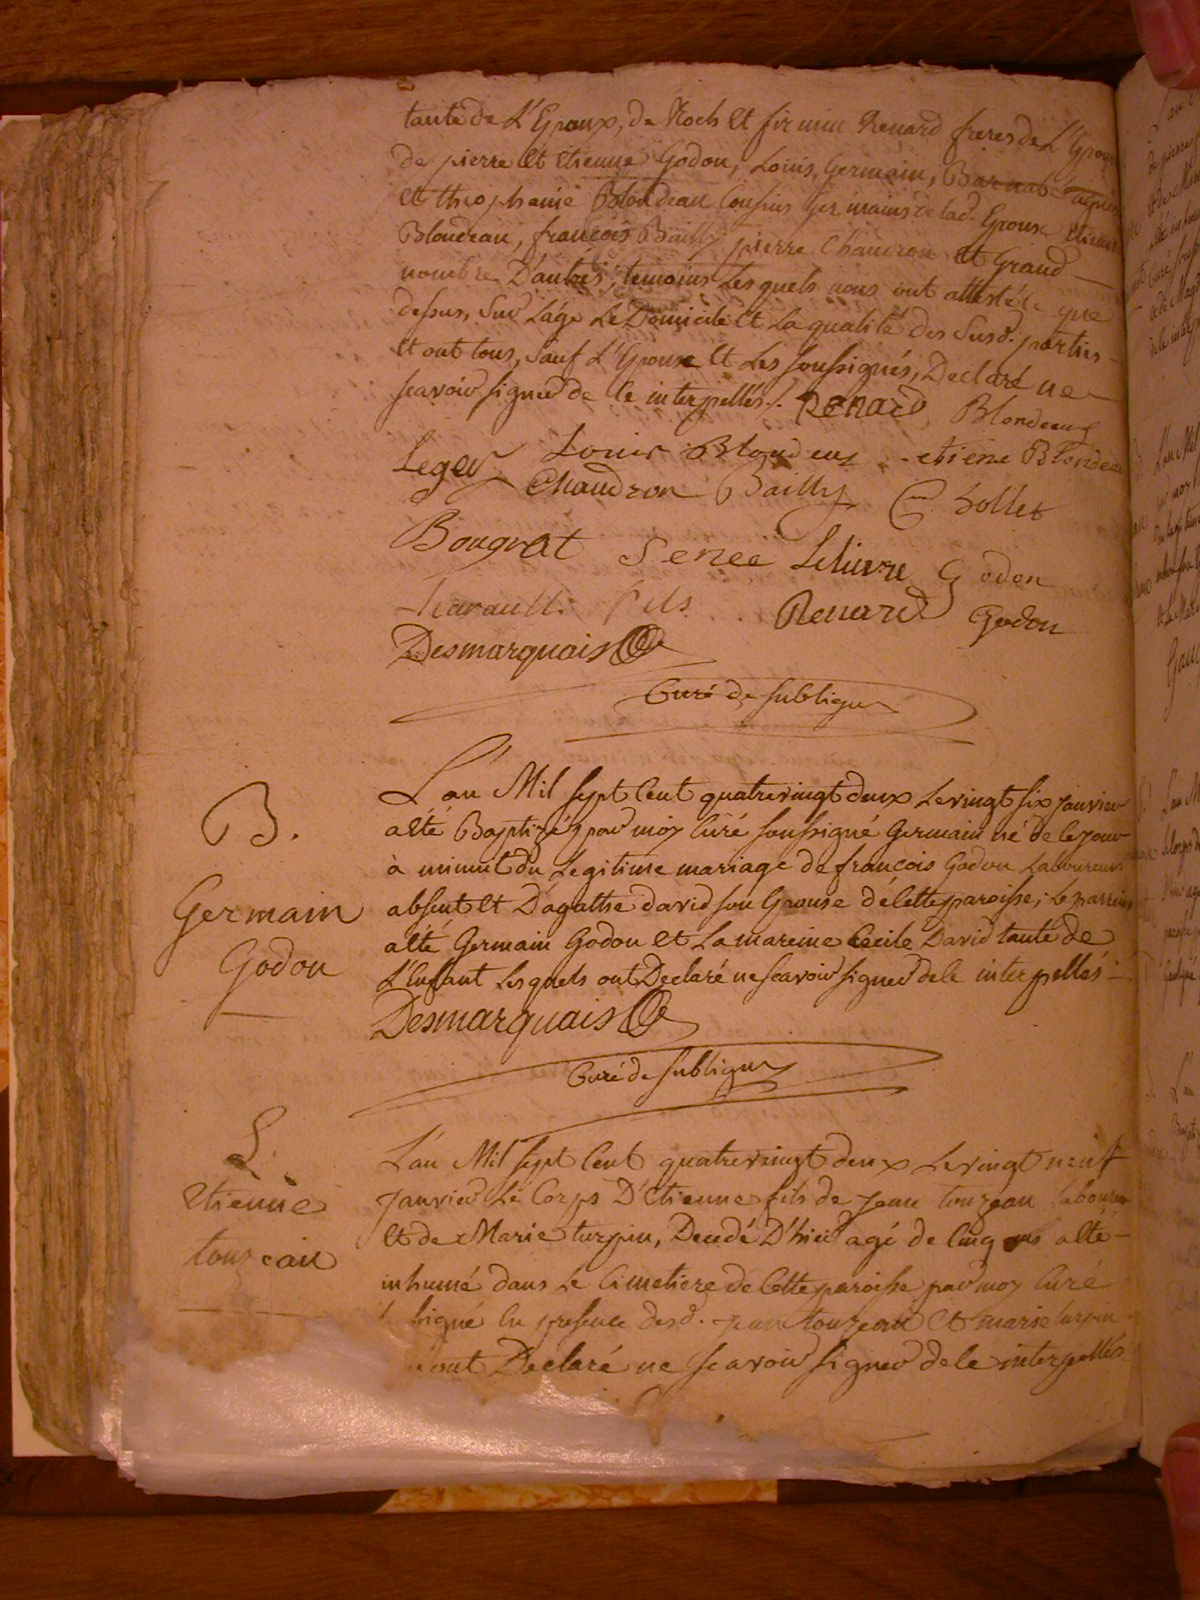 tante de L'Epoux, de Roch et firmin Renard freres de L'Epoux
de pierre et Etienne Godou, Louis, Germain, Barnabé
et theophanie Blondeau Cousins germains de lad. Epouse Etienne
Blondeau, françois Bailly pierre Chaudron et Grand
nombre D'autres, temoins Lesquels nous ont attesté ce que
dessus, Sur L'âge Le Domicile et La qualité des Susd. parties
et ont tous, Sauf L'Epouse et Les soussignés, Declaré ne
scavoir signer de ce interpellés. Renard Blondeau
Leger Louis Blondeau etiene Blondeau
Chaudron Bailly Chollet
Bougrat Lelievre Godon
fils Renard Godou
Desmarquais
Curé de subligny
B.
Germain
Godou
L'an Mil sept Cent quatrevingt deux Le vingt six janvier
a eté Baptizé par moy Curé soussigné Germain né de ce jour
à minuit du Legitime mariage de françois Godou Laboureur
absent et D'agathe david son Epouse de cette paroisse; Le parrein
a eté Germain Godou et La mareine Cécile David tante de
L'Enfant Lesquels ont Declaré ne scavoir signer de ce interpellés
Desmarquais
Curé de subligny
S.
Etienne
touzeau
L'an Mil sept Cent quatrevingt deux Le vingt neuf
janvier Le Corps D'Etienne fils de jean touzeau laboureur
et de Marie turpin, Decedé D'hier agé de Cinq ans a eté
inhumé dans Le Cimetiere de Cette paroisse par moy Curé
signé En presence desd. jean touzeau et marie turpin
ont Declaré ne scavoir signer de ce interpellés